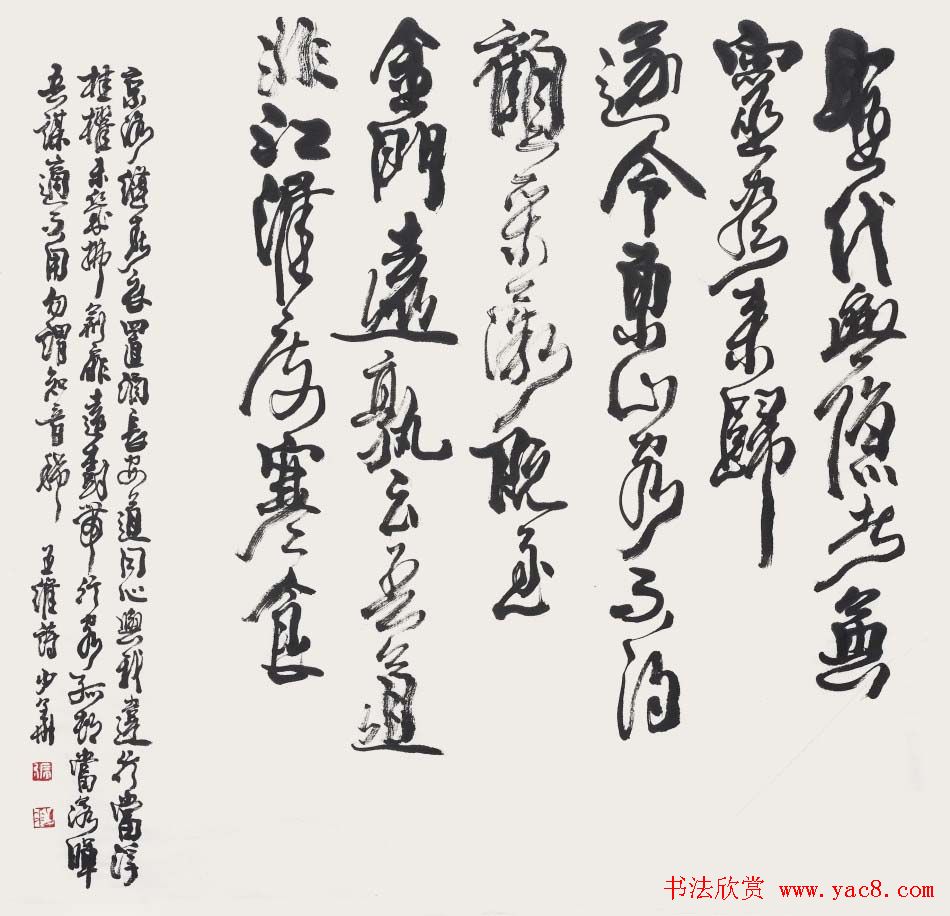 聖代無隱者英
靈盡來歸
遂令東山客不得
顧采薇既至
金門遠孰云吾道
非江淮度寒食
京洛縫春衣置酒長安道同心與我違行當浮
桂櫂未幾拂荊扉遠樹帶行客孤邨當落暉
吾謀適不用勿謂知音稀 王維詩 少華
书法欣赏 www.yac8.com